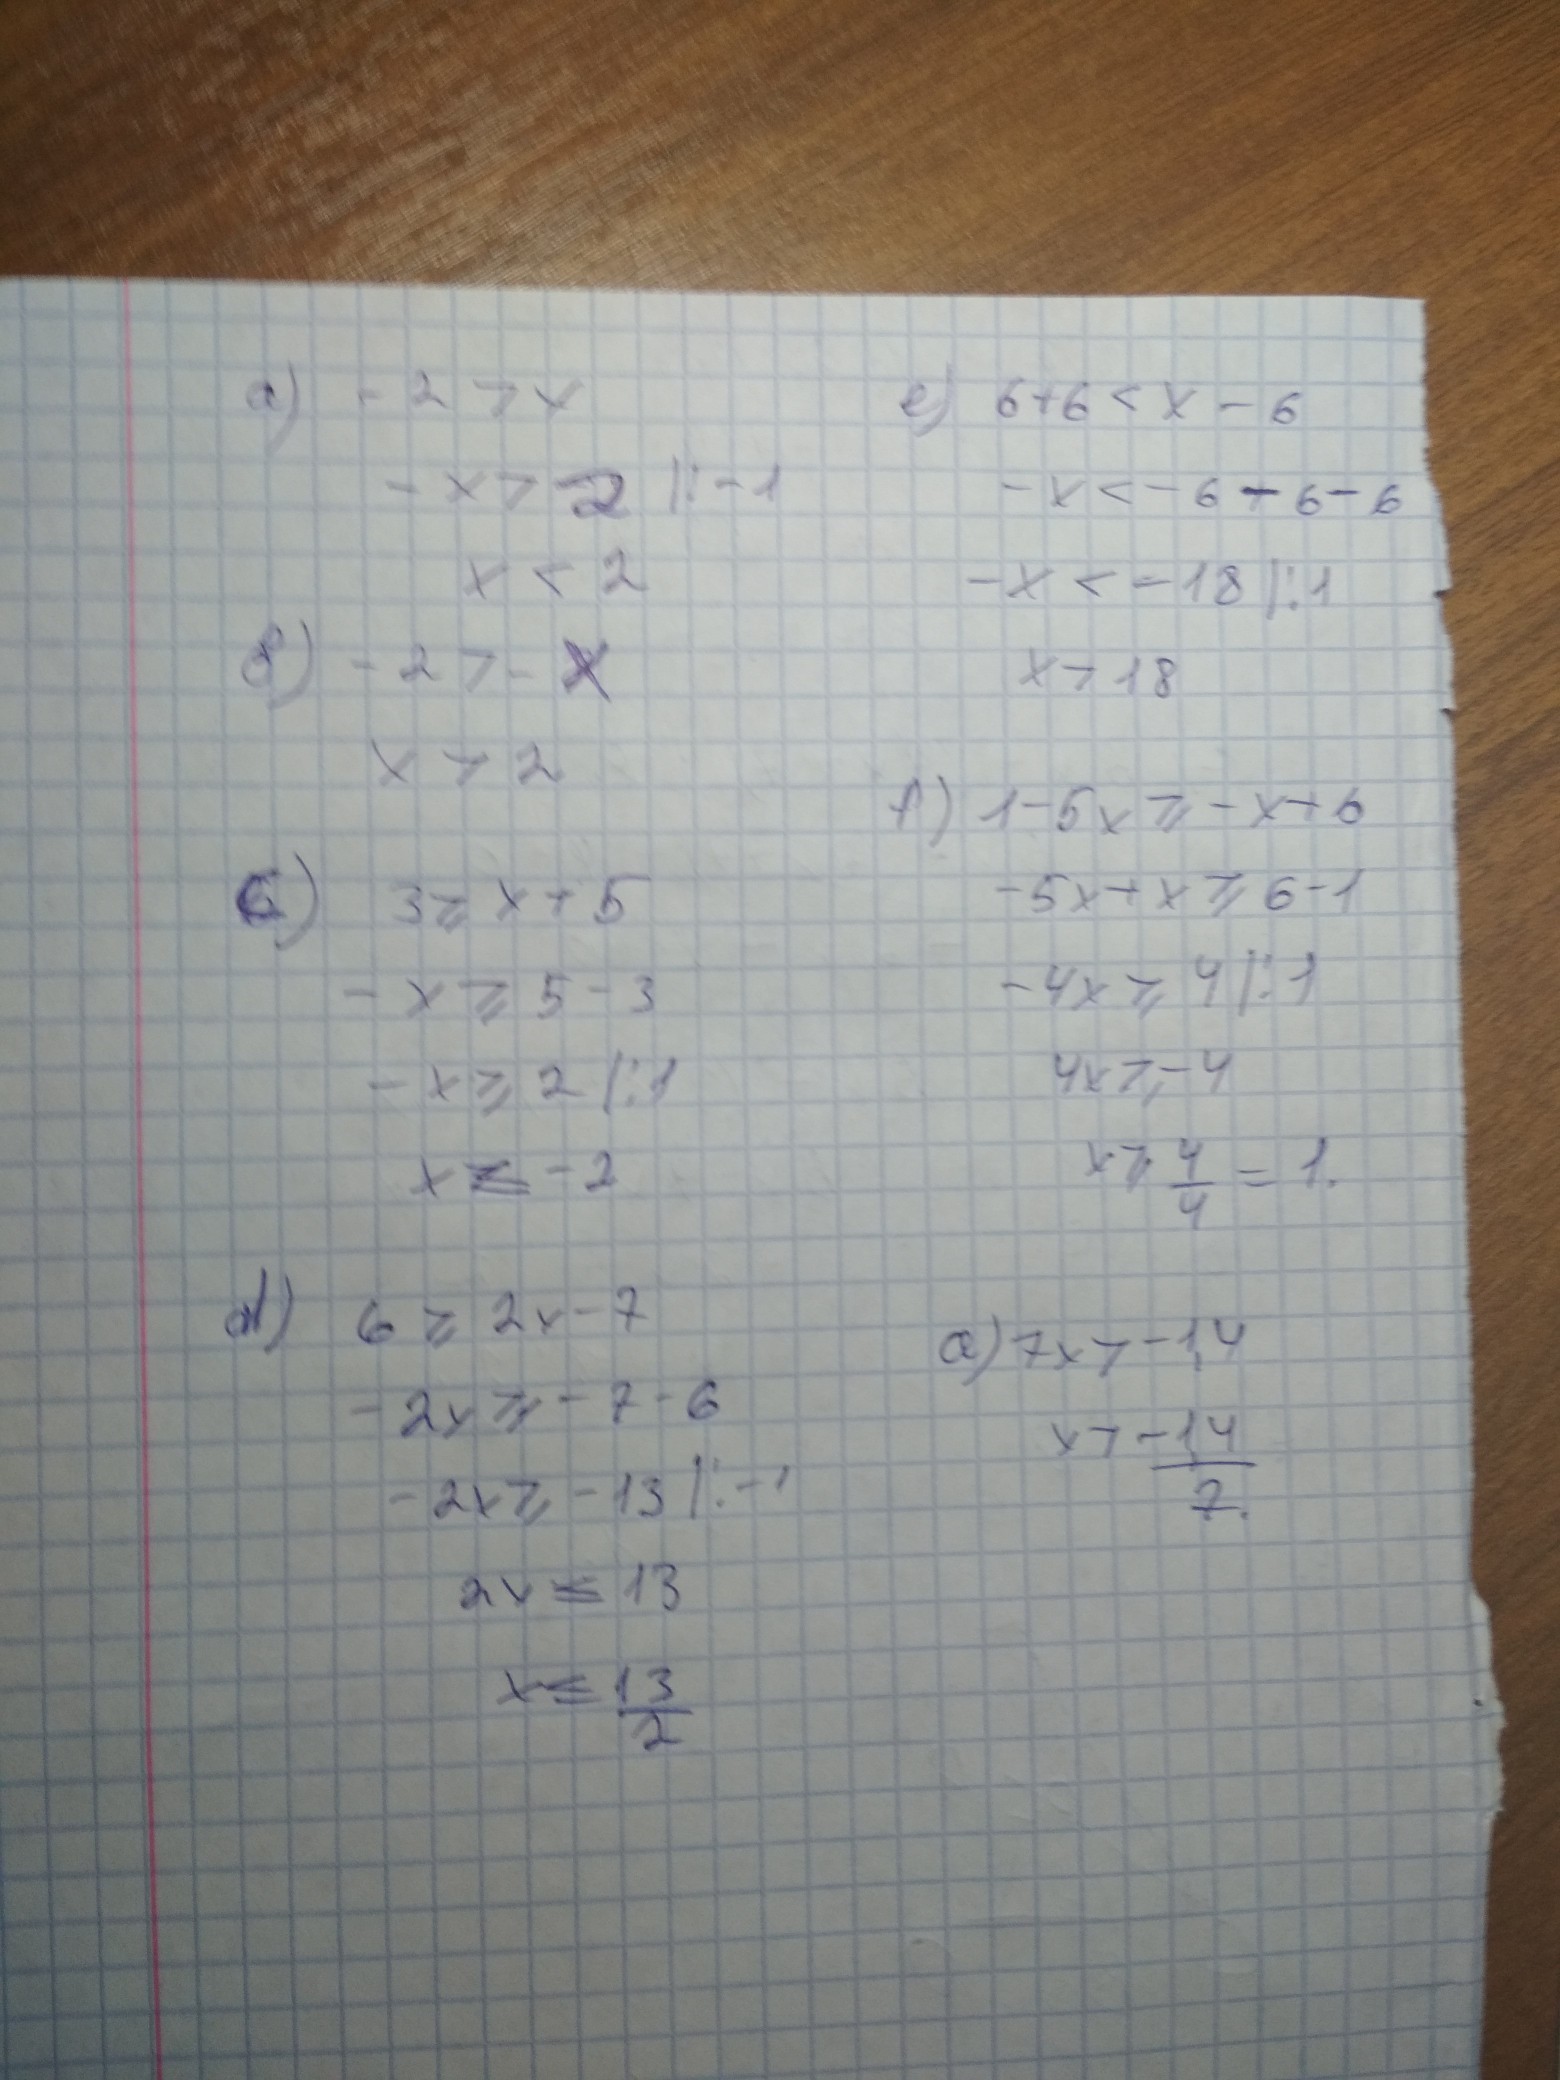 a) -2 > x
-x > -2 |: -1
x < 2
b) -2 > - x
x > 2
c) 3 ≥ x + 5
-x ≥ 5 - 3
-x ≥ 2 |: 1
x ≤ -2
d) 6 ≥ 2x - 7
-2x ≥ -7 - 6
-2x ≥ -13 |: -1
2x ≤ 13
x ≤ 13/2
e) 6+6 < x - 6
-x < -6 - 6 - 6
-x < -18 |: 1
x > 18
f) 1-5x ≥ -x+6
-5x+x ≥ 6-1
-4x ≥ 4 |: 1
4x ≥ -4
x ≥ 4/4 = 1.
a) 7x > -1,4
x > -1,4/7.